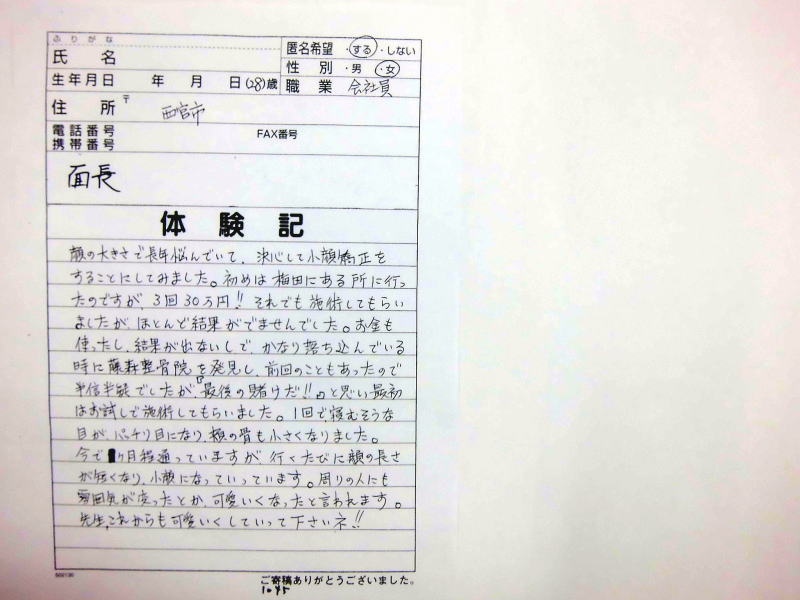 ふりがな
氏 名
匿名希望 ・する・しない
性 別 ・男 ・女
生年月日 年 月 日(28)歳
職 業 会社員
住 所 〒 西宮市
電話番号 FAX番号
携帯番号
面長
体験記
顔の大きさで長年悩んでいて、決心して小顔矯正を
することにしてみました。初めは梅田にある所に行っ
たのですが、3回30万円!! それでも施術してもらい
ましたが、ほとんど結果がでませんでした。お金も
使ったし、結果が出ないしで、かなり落ち込んでいる
時に藤森整骨院を発見し、前回のこともあったので
半信半疑でしたが、『最後の賭けだ!!』と思い最初
はお試しで施術してもらいました。1回で寝むそうな
目が、パッチリ目になり、頬の骨も小さくなりました。
今で ヶ月程通っていますが、行くたびに顔の長さ
が短くなり、小顔になっていっています。周りの人にも
雰囲気が変ったとか、可愛いくなったと言われます。
先生、これからも可愛いくしていって下さいネ!!
ご寄稿ありがとうございました。